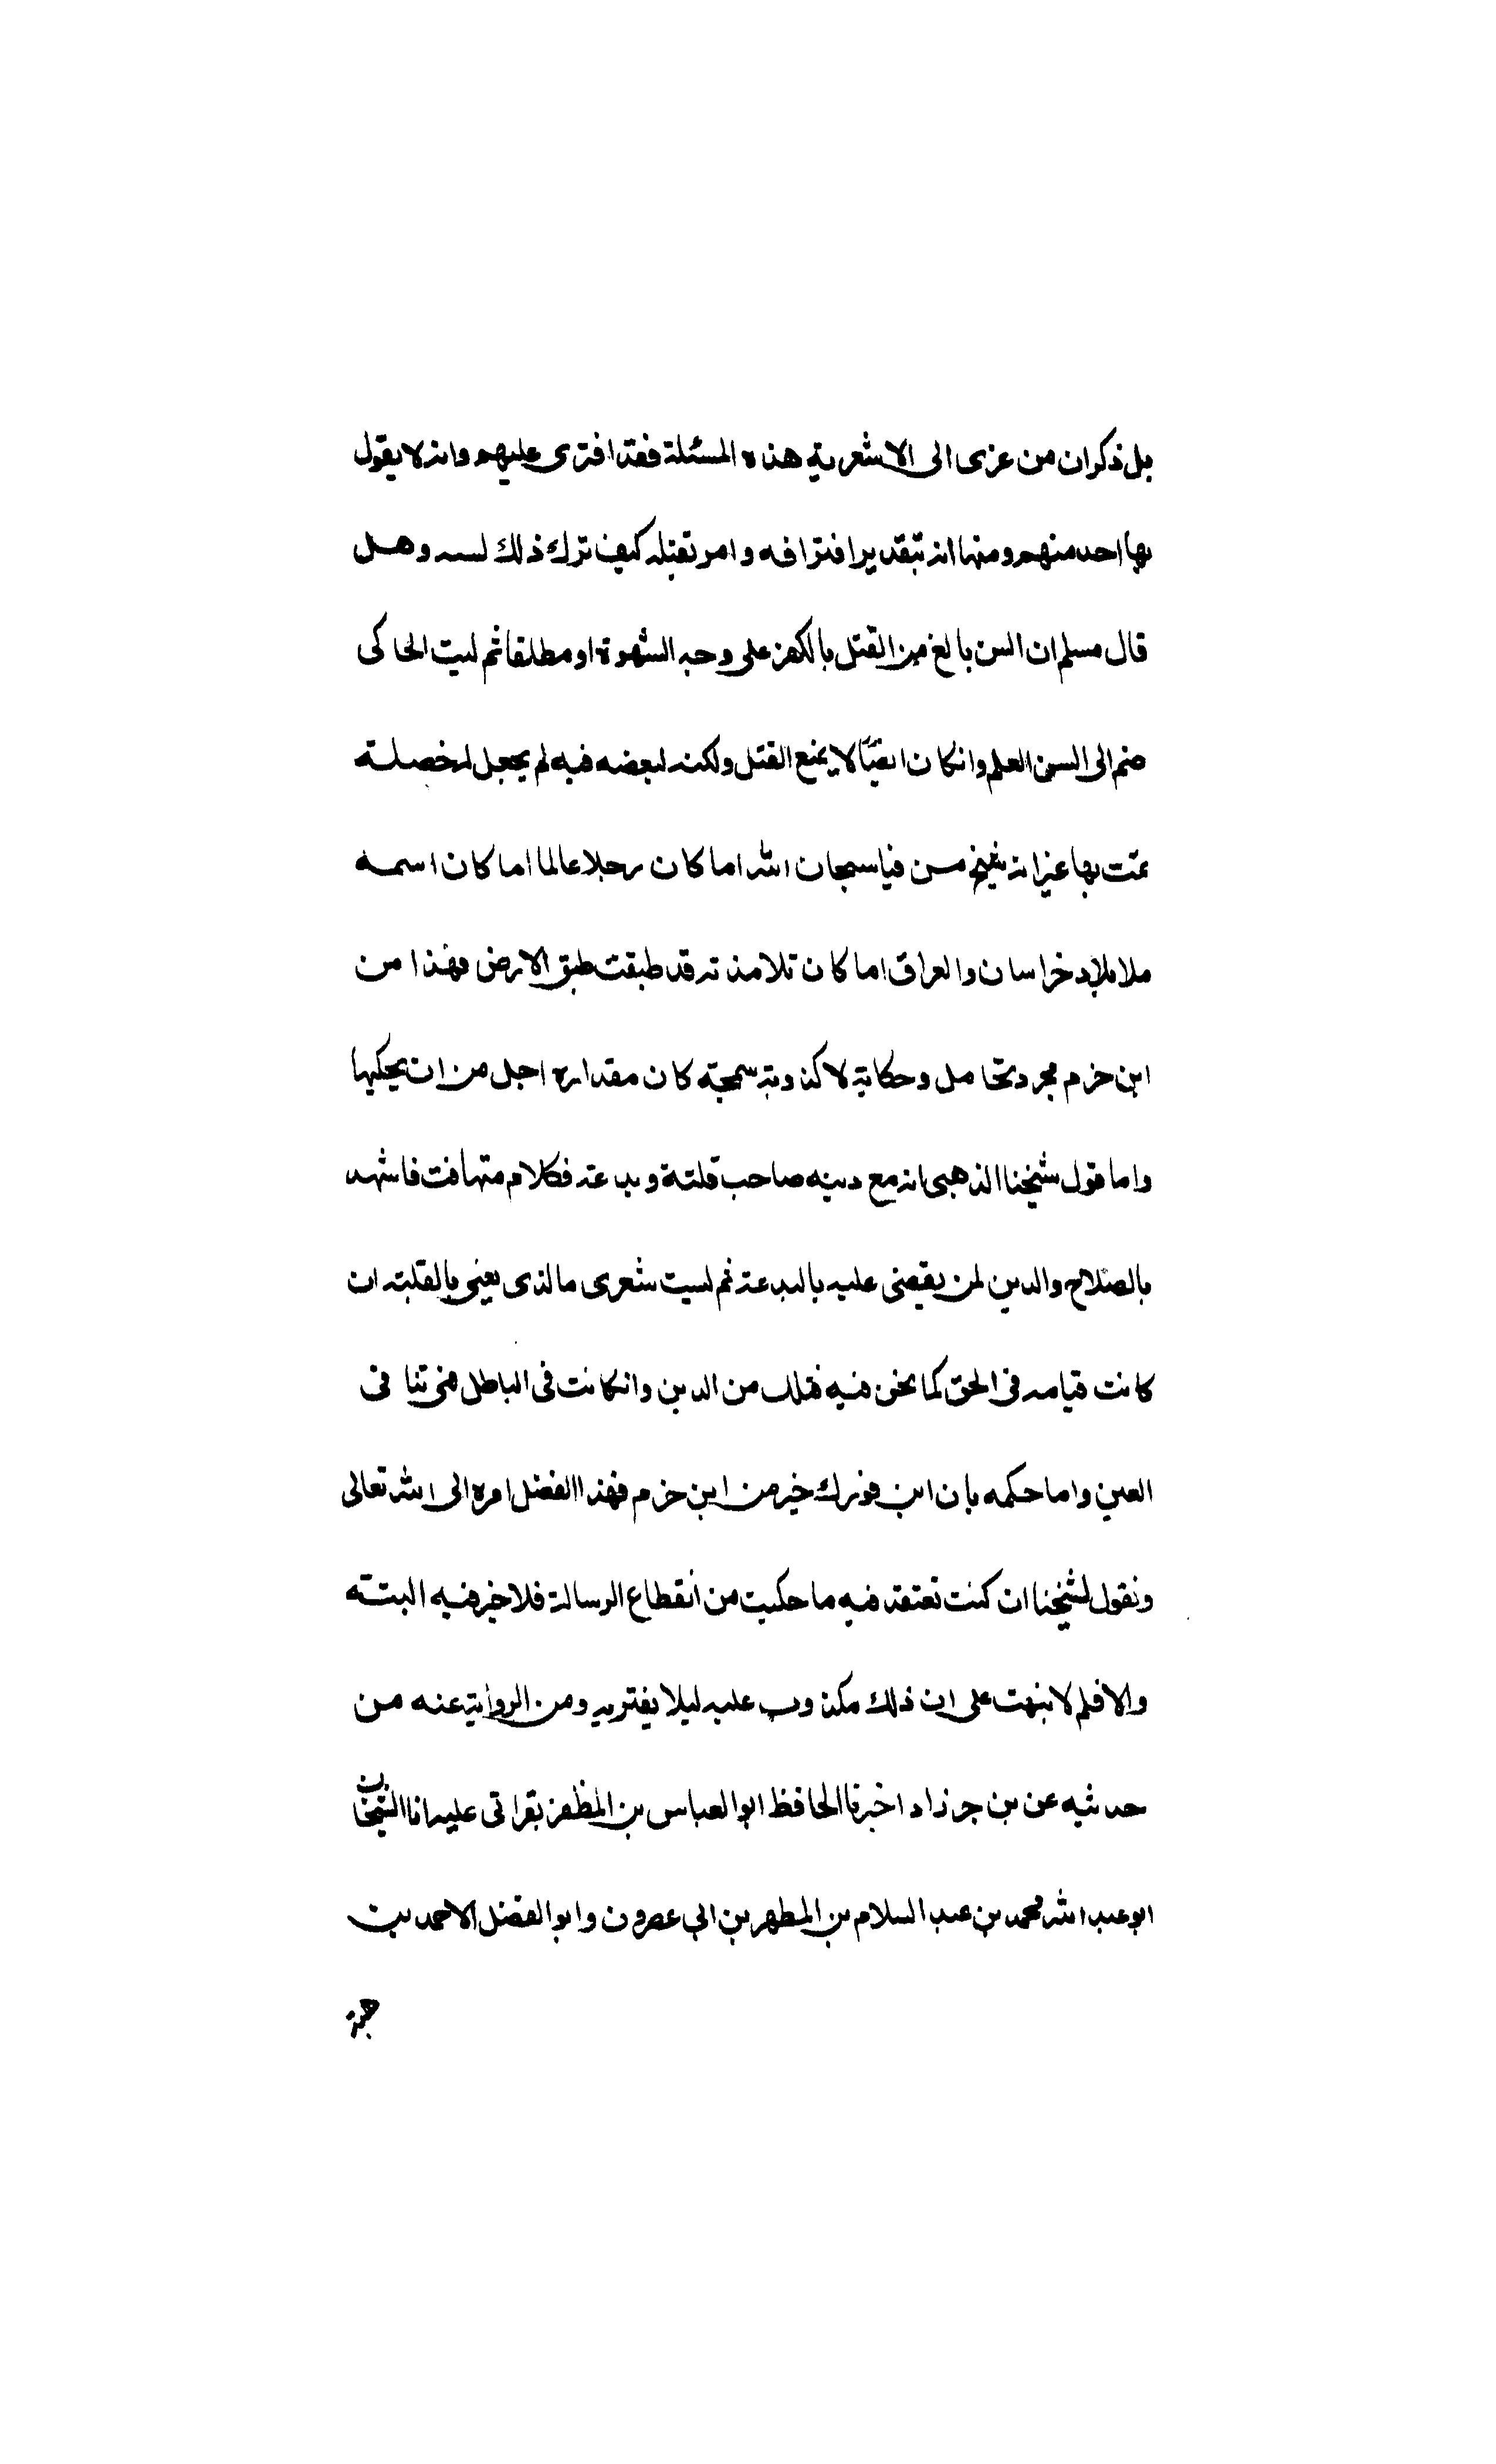 بل ذكر ان من عزى الى الاشعرية هذه المسئلة فقد افترى عليهم وانه لا يقول
بها احد منهم ومنها انه بتقدير افترافه وامر بقتله كيف ترك ذلك لسنه وهل
قال مسلم ان السن بالغ من القتل بالكفر على وجه الشهوة او مطلقا ثم ليت الحاكى
ضم الى السن العلم وانكان ايضا لا يمنع القتل ولكنه لبعضه فيه لم يجعل له خصلة
يمت بها غير انه شيخ مسن فيا سبحان الله اما كان رجلا عالما اما كان اسمه
ملا بلاد خراسان والعراق اما كان تلامذته قد طبقت طبق الارض فهذا من
ابن حزم مجرد تحامل وحكاية لاكذوبة سمجة كان مقداره اجل من ان يحكيها
واما قول شيخنا الذهبى انه مع دينه صاحب قلتة وبدعة فكلام متهافت فاشهد
بالصلاح والدين لمن يقضى عليه بالبدعة ثم ليت شعرى مالذى يعنى بالقلبته ان
كانت قيامه فى الحق كما نحن فيه فتلك من الدين وانكانت فى الباطل فهى تنافى
العين واما حكمه بان ابن فورك خير من ابن حزم فهذا الفضل امره الى الله تعالى
ونقول لشيخنا ان كنت تعتقد فيه ما حكيت من انقطاع الرسالة فلا خير فيه البتته
والا فلم لا نبهت على ان ذلك مكذوب عليه ليلا يغتر به ومن الرواية عنه من
حدثيه عن بن جرزاد اخبرنا الحافظ ابو العباس بن المظفر بقراتى عليه انا الشيخان
ابو عبد الله محمد بن عبد السلام بن المطهر بن ابى عصرون وابو الفضل الاحمد بن